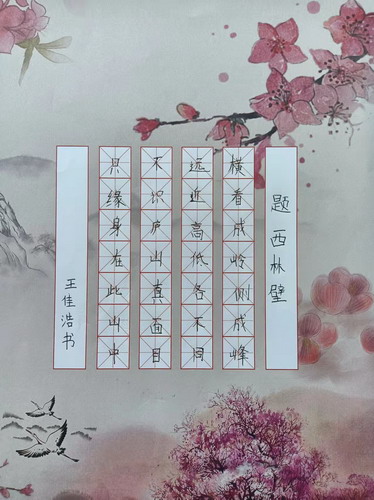 题西林壁
横看成岭侧成峰
远近高低各不同
不识庐山真面目
只缘身在此山中
王佳浩书